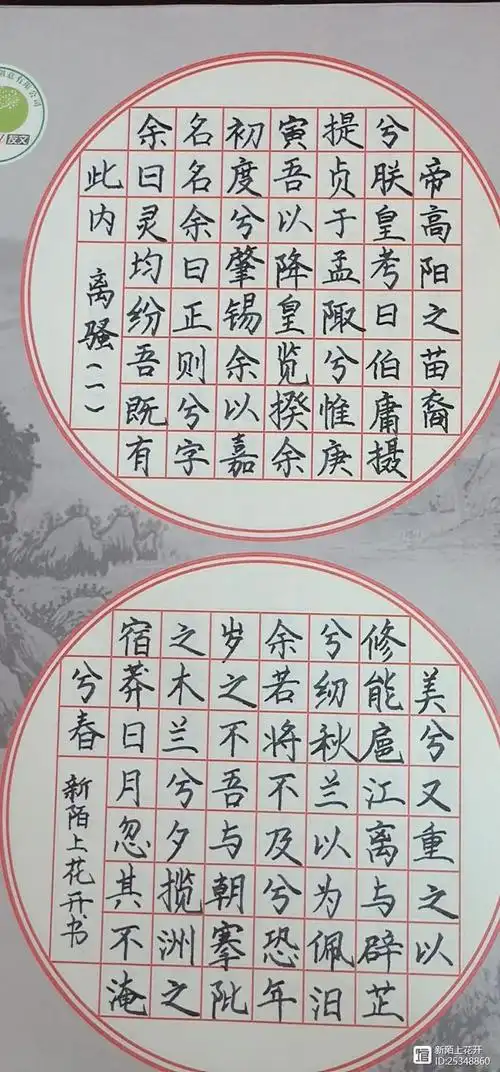 帝高阳之苗裔
兮朕皇考曰伯庸摄
提贞于孟陬兮惟庚
寅吾以降皇览揆余
初度兮肇锡余以嘉
名名余曰正则兮字
余曰灵均纷吾既有
此内
离骚(一)
美兮又重之以
修能扈江离与辟芷
兮纫秋兰以为佩汨
余若将不及兮恐年
岁之不吾与朝搴阰
之木兰兮夕揽洲之
宿莽日月忽其不淹
兮春
新陌上花开书
意有限公司
新陌上花开
ID:25348860